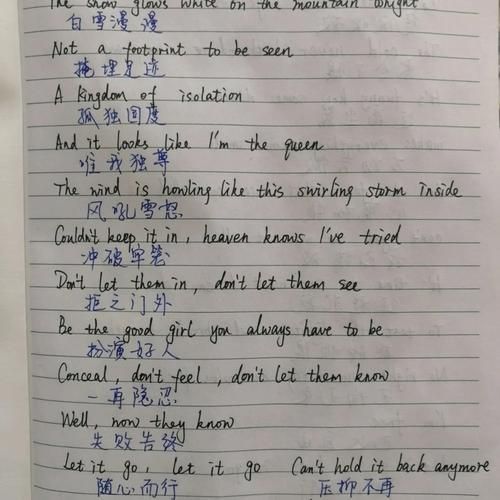 The snow glows white on the mountain tonight
白雪漫漫
Not a footprint to be seen
掩埋足迹
A kingdom of isolation
孤独国度
And it looks like I'm the queen
唯我独尊
The wind is howling like this swirling storm inside
风吼雪怒
Couldn't keep it in, heaven knows I've tried
冲破牢笼
Don't let them in, don't let them see
拒之门外
Be the good girl you always have to be
扮演好人
Conceal, don't feel, don't let them know
一再隐忍
Well, now they know
失败告终
Let it go, let it go Can't hold it back anymore
随心而行 压抑不再